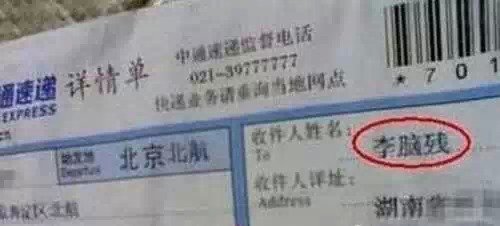 通速递 详情单
EXPRESS
中通速递监督电话
021-39777777
快递业务请垂询当地网点
*701
始发地 北京北航
收件人姓名: 李脑残
To
收件人详址: 湖南
Address
淀区北航